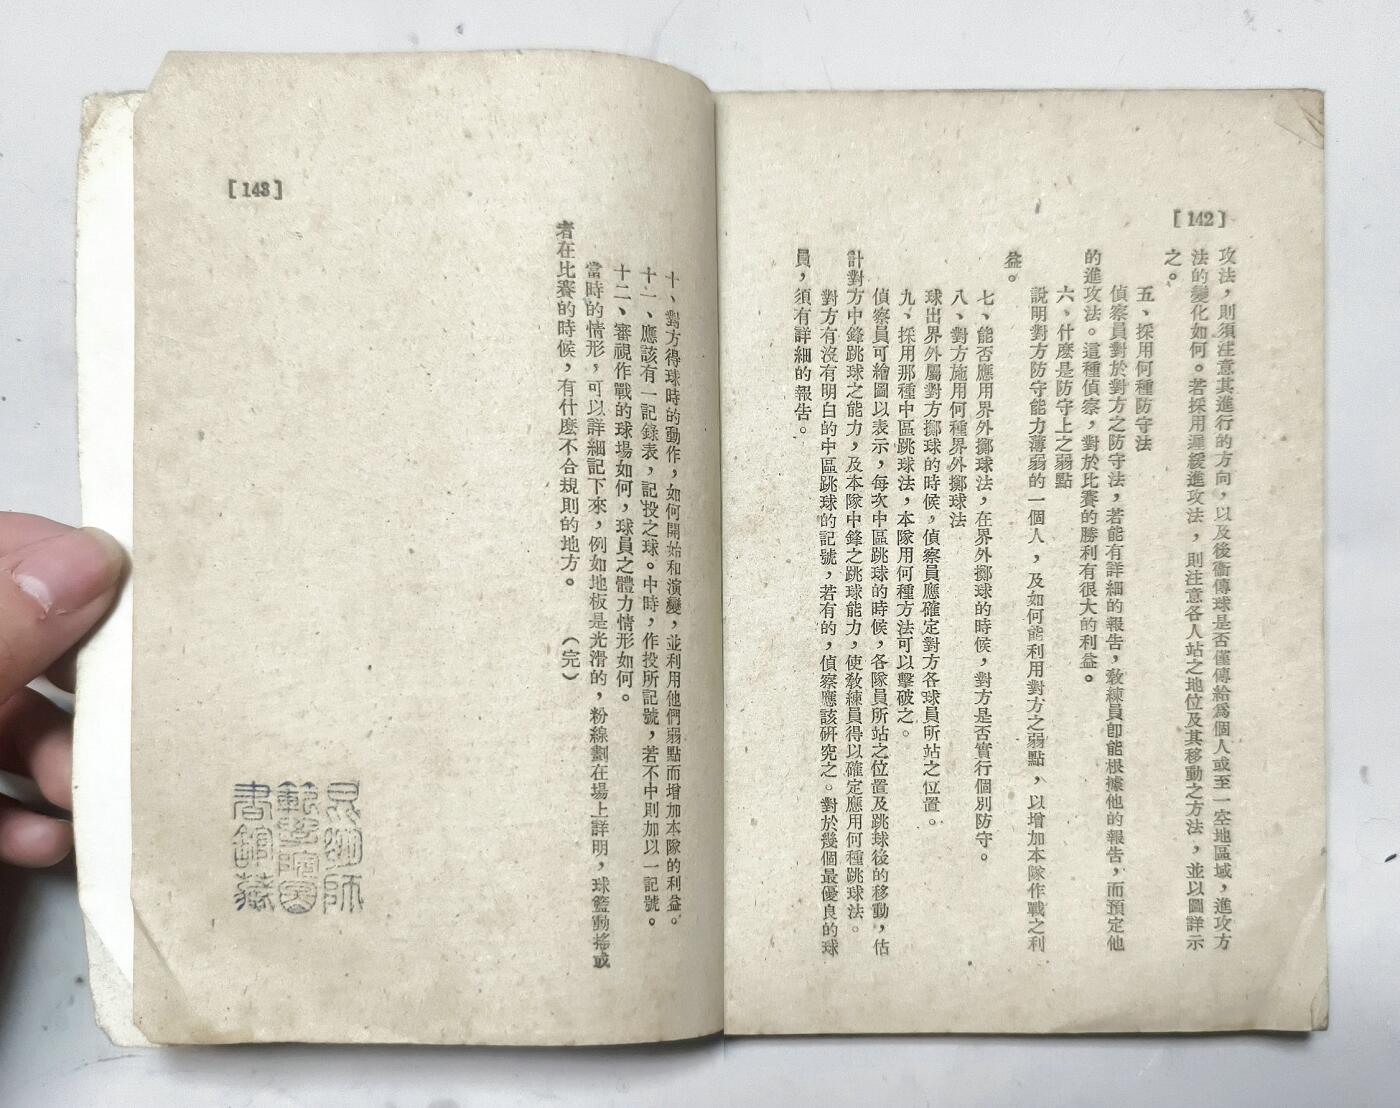 [142]
攻法，則須注意其進行的方向，以及後衞傳球是否僅傳給爲個人或至一空地區域，進攻方
法的變化如何。若採用遲緩進攻法，則注意各人站之地位及其移動之方法，並以圖詳示
之。
五、採用何種防守法
偵察員對於對方之防守法，若能有詳細的報告，敎練員卽能根據他的報告，而預定他
的進攻法。這種偵察，對於比賽的勝利有很大的利益。
六、什麽是防守上之弱點
說明對方防守能力薄弱的一個人，及如何能利用對方之弱點，以增加本隊作戰之利
益。
七、能否應用界外擲球法，在界外擲球的時候，對方是否實行個別防守。
八、對方施用何種界外擲球法
球出界外屬對方擲球的時候，偵察員應確定對方各球員所站之位置。
九、採用那種中區跳球法，本隊用何種方法可以擊破之。
偵察員可繪圖以表示，每次中區跳球的時候，各隊員所站之位置及跳球後的移動，估
計對方中鋒跳球之能力，及本隊中鋒之跳球能力，使敎練員得以確定應用何種跳球法。
對方有沒有明白的中區跳球的記號，若有的，偵察應該研究之。對於幾個最優良的球
員，須有詳細的報告。
[143]
十、對方得球時的動作，如何開始和演變，並利用他們弱點而增加本隊的利益。
十一、應該有一記錄表，記投之球。中時，作投所記號，若不中則加以一記號。
十二、審視作戰的球場如何，球員之體力情形如何。
當時的情形，可以詳細記下來，例如地板是光滑的，粉線劃在場上詳明，球籃動搖或
者在比賽的時候，有什麽不合規則的地方。　（完）
師
範學院圖
書館藏